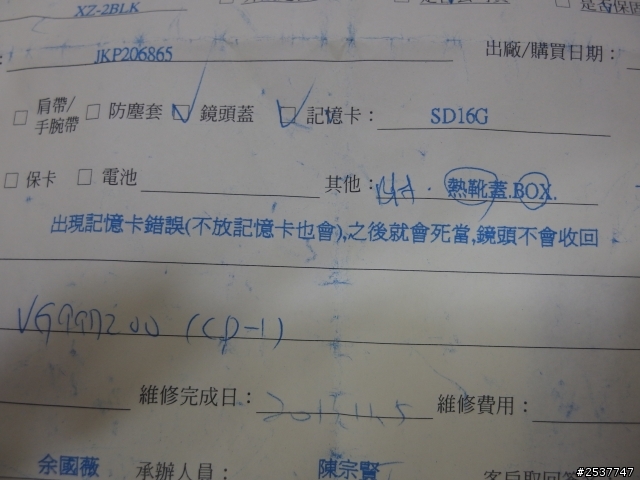 XZ-2BLK
JKP206865 出廠/購買日期：
□ 肩帶/手腕帶 □ 防塵套 ☑ 鏡頭蓋 ☑ 記憶卡： SD16G
□ 保卡 □ 電池 其他： 熱靴蓋.BOX.
出現記憶卡錯誤(不放記憶卡也會),之後就會死當,鏡頭不會收回
(CP-1)
維修完成日： 維修費用：
余國薇 承辦人員： 陳宗賢
#2537747